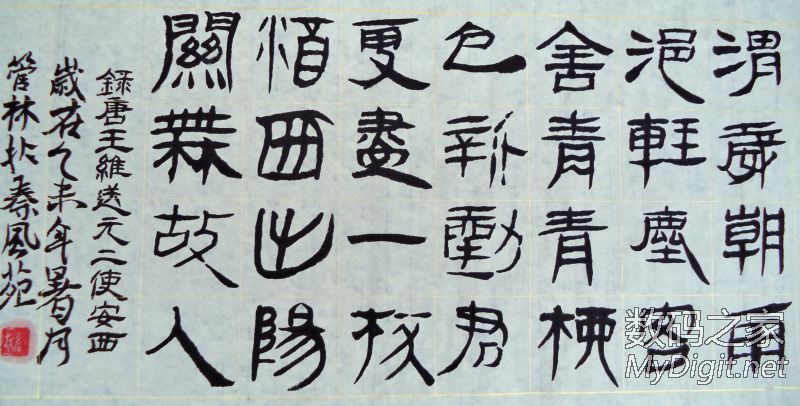 渭城朝雨
浥輕塵客
舍青青柳
色新勸君
更盡一杯
酒西出陽
關無故人
錄唐王維送元二使安西
歲在乙未年暑月
管林於秦風苑
数码之家
MyDigit.net